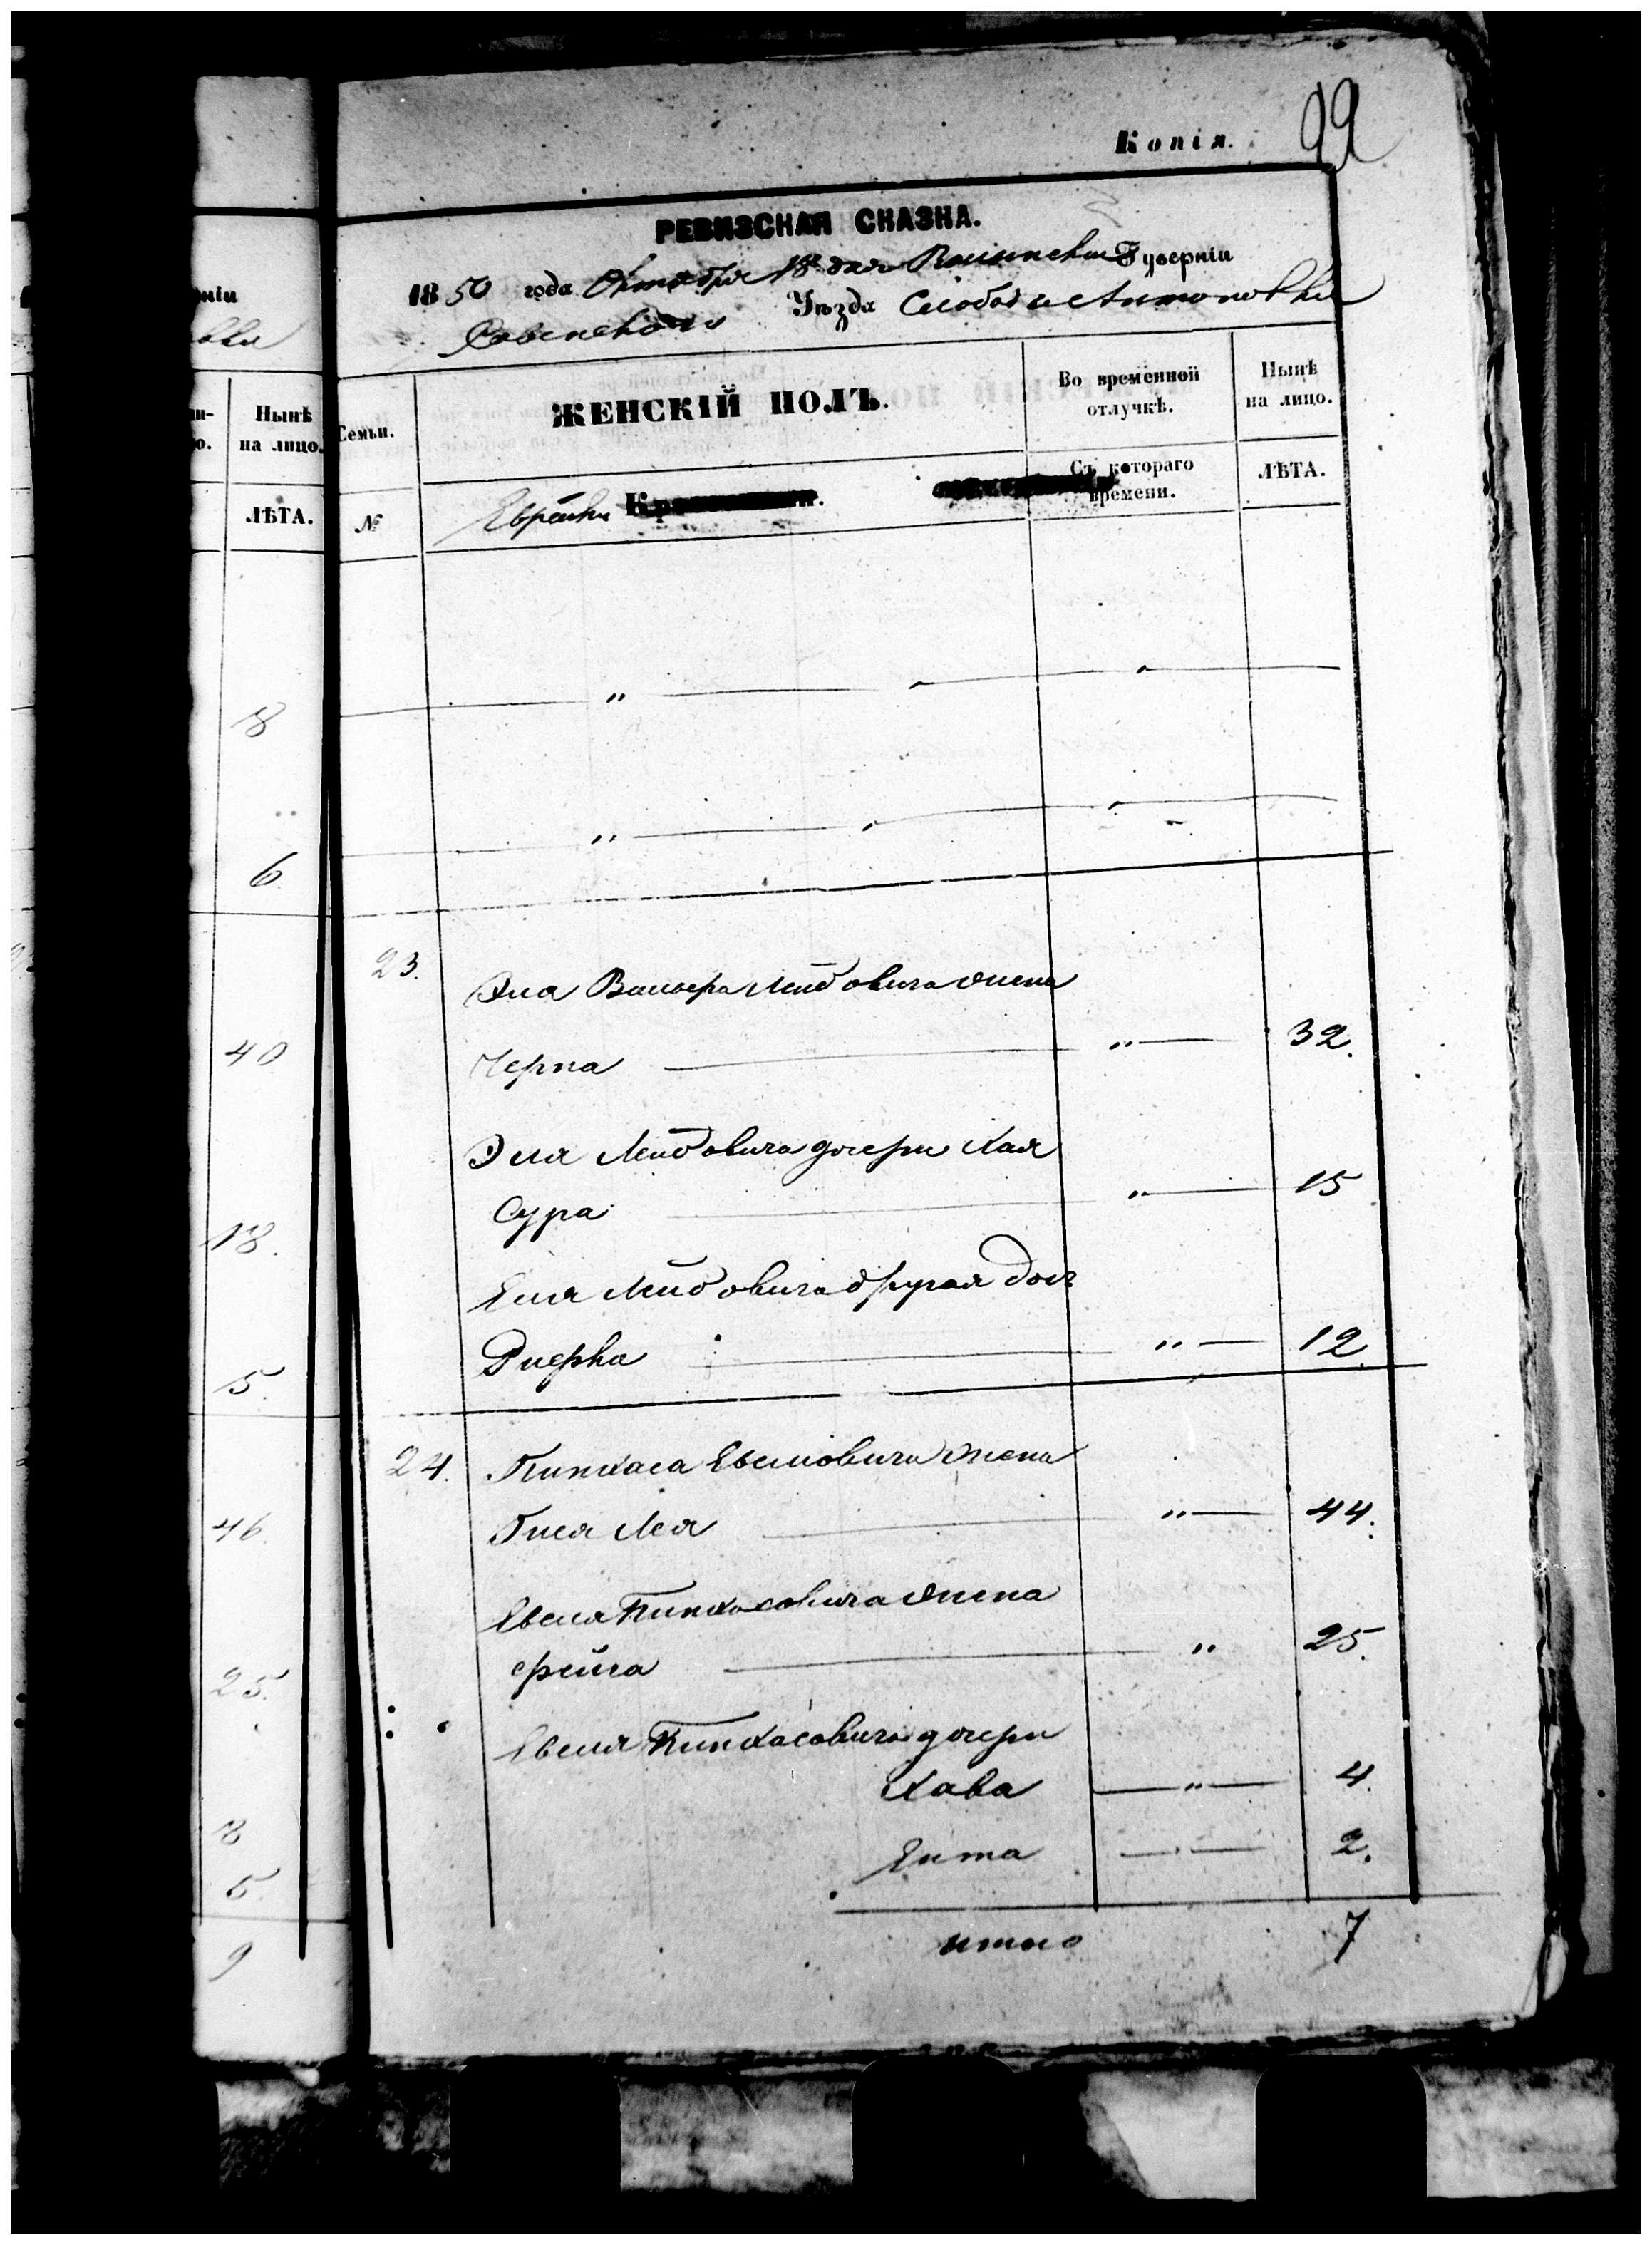 Копія. 99
РЕВИЗСКАЯ СКАЗКА.
1850 года Октября 18 дня Волынской Губерніи
Ровенскаго Уѣзда Слободы Антоновки
Семьи. ЖЕНСКІЙ ПОЛЪ. Во временной отлучкѣ. Нынѣ на лицо.
№ Еврейки Съ котораго времени. ЛѢТА.
23. Эля Лейбовича жена
Черна " 32.
Эля Лейбовича дочери Хая
Сура " 15
Еля Лейбовича другая дочь
Рнерка " 12
24. Пинхаса Евелювича жена
Гися Лея " 44.
Евеля Пинхасовича жена
Фейга " 25.
Евеля Пинхасовича дочери
Хава " 4.
Ента " 2.
итого 7
ніи
овки
Нынѣ на лицо.
ЛѢТА.
18
6
40
18.
5.
46.
25.
8
5.
9